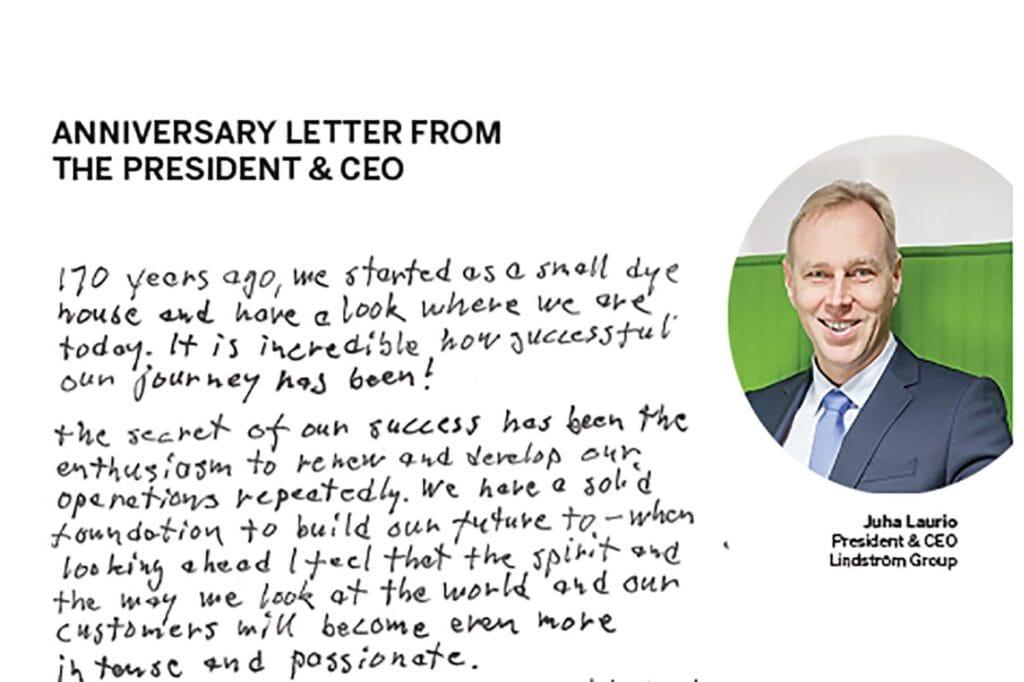 ANNIVERSARY LETTER FROM
THE PRESIDENT & CEO
170 years ago, we started as a small dye
house and have a look where we are
today. It is incredible, how successful
our journey has been!
the secret of our success has been the
enthusiasm to renew and develop our
operations repeatedly. We have a solid
foundation to build our future to – when
looking ahead I feel that the spirit and
the way we look at the world and our
customers will become even more
intense and passionate.
Juha Laurio
President & CEO
Lindström Group